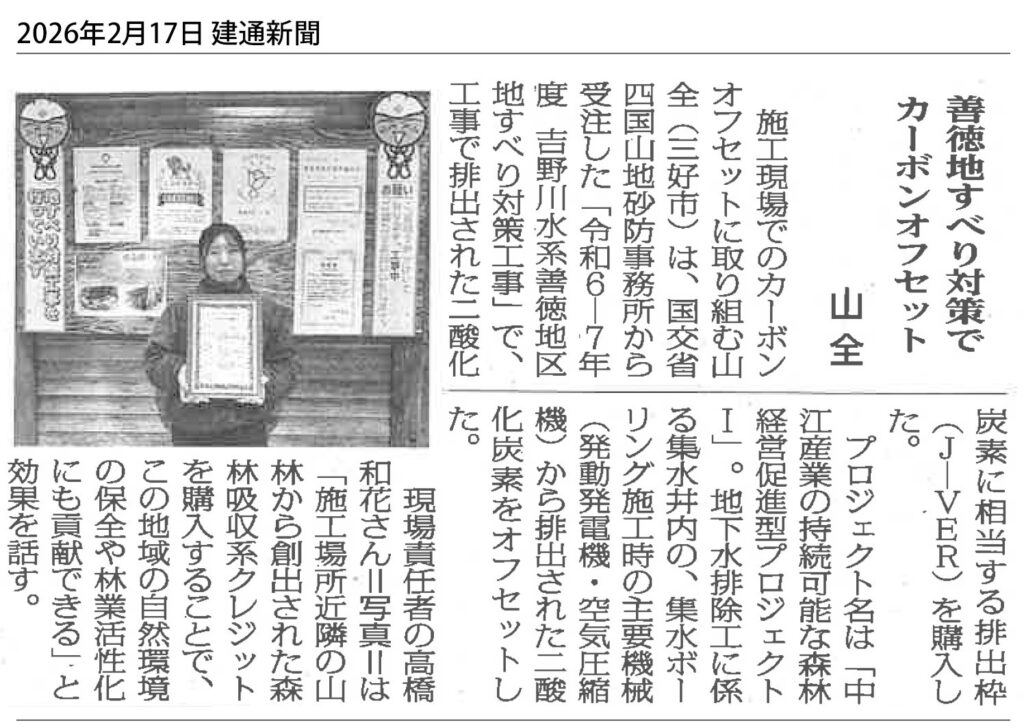 2026年2月17日 建通新聞
善徳地すべり対策で
カーボンオフセット
山全
施工現場でのカーボン
オフセットに取り組む山
全（三好市）は、国交省
四国山地砂防事務所から
受注した「令和6―7年
度 吉野川水系善徳地区
地すべり対策工事」で、
工事で排出された二酸化
炭素に相当する排出枠
（J―VER）を購入し
た。
プロジェクト名は「中
江産業の持続可能な森林
経営促進型プロジェクト
Ⅰ」。地下水排除工に係
る集水井内の、集水ボー
リング施工時の主要機械
（発動発電機・空気圧縮
機）から排出された二酸
化炭素をオフセットし
た。
現場責任者の高橋
和花さん＝写真＝は
「施工場所近隣の山
林から創出された森
林吸収系クレジット
を購入することで、
この地域の自然環境
の保全や林業活性化
にも貢献できる」と
効果を話す。
お願い
工事中